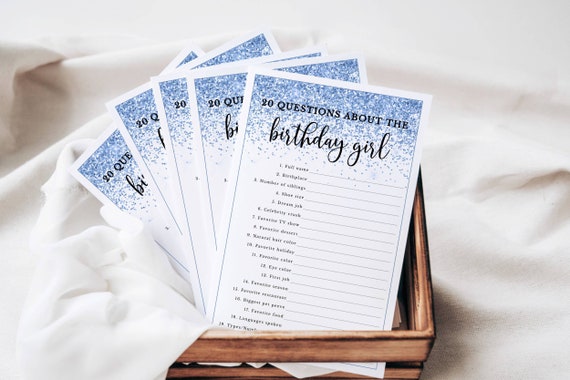 20 QUESTIONS ABOUT THE
birthday girl
1. Full name
2. Birthplace
3. Number of siblings
4. Shoe size
5. Dream job
6. Celebrity crush
7. Favorite TV show
8. Favorite dessert
9. Natural hair color
10. Favorite holiday
11. Favorite color
12. Eye color
13. First job
14. Favorite season
15. Favorite restaurant
16. Biggest pet peeve
17. Favorite food
18. Languages spoken
20
bi
20
b
20 QUE
bi
20 QUESTION
bi